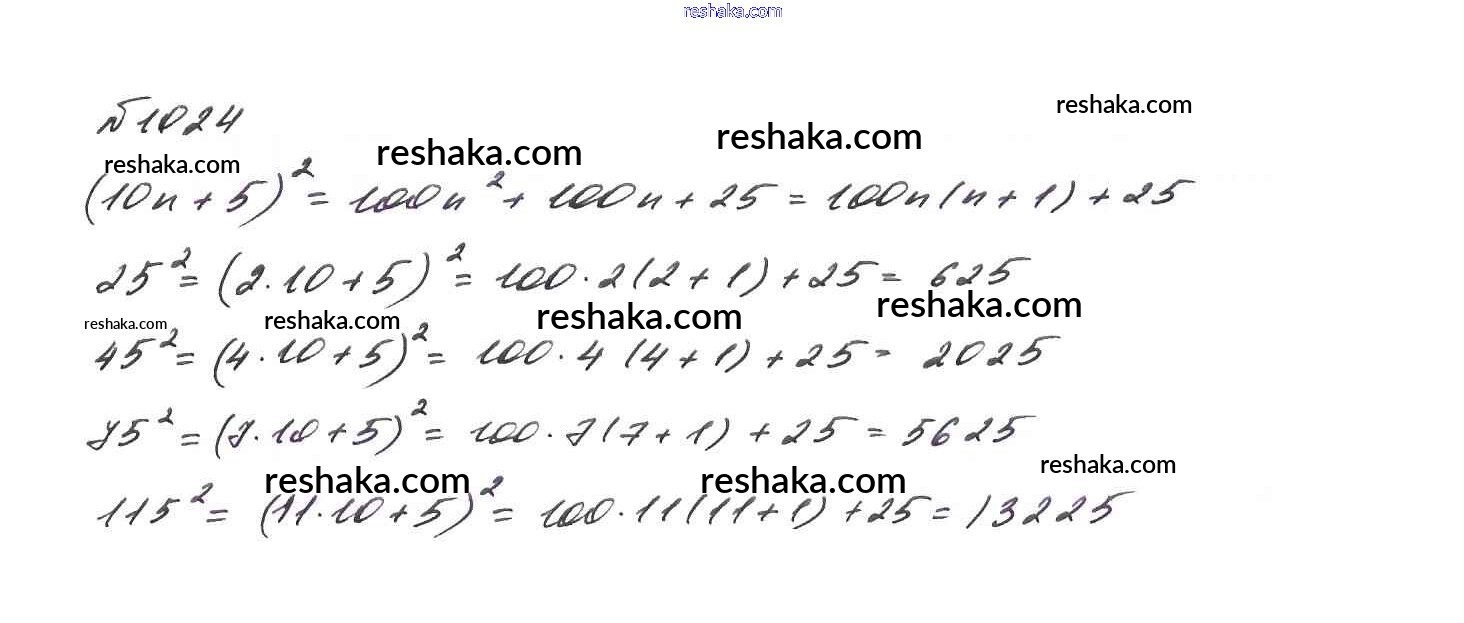 reshaka.com
№1024
reshaka.com
reshaka.com reshaka.com reshaka.com
(10n+5)² = 100n² + 100n + 25 = 100n(n+1) + 25
25² = (2·10+5)² = 100·2(2+1) + 25 = 625
reshaka.com reshaka.com reshaka.com reshaka.com
45² = (4·10+5)² = 100·4(4+1) + 25 = 2025
75² = (7·10+5)² = 100·7(7+1) + 25 = 5625
reshaka.com reshaka.com reshaka.com
115² = (11·10+5)² = 100·11(11+1) + 25 = 13225